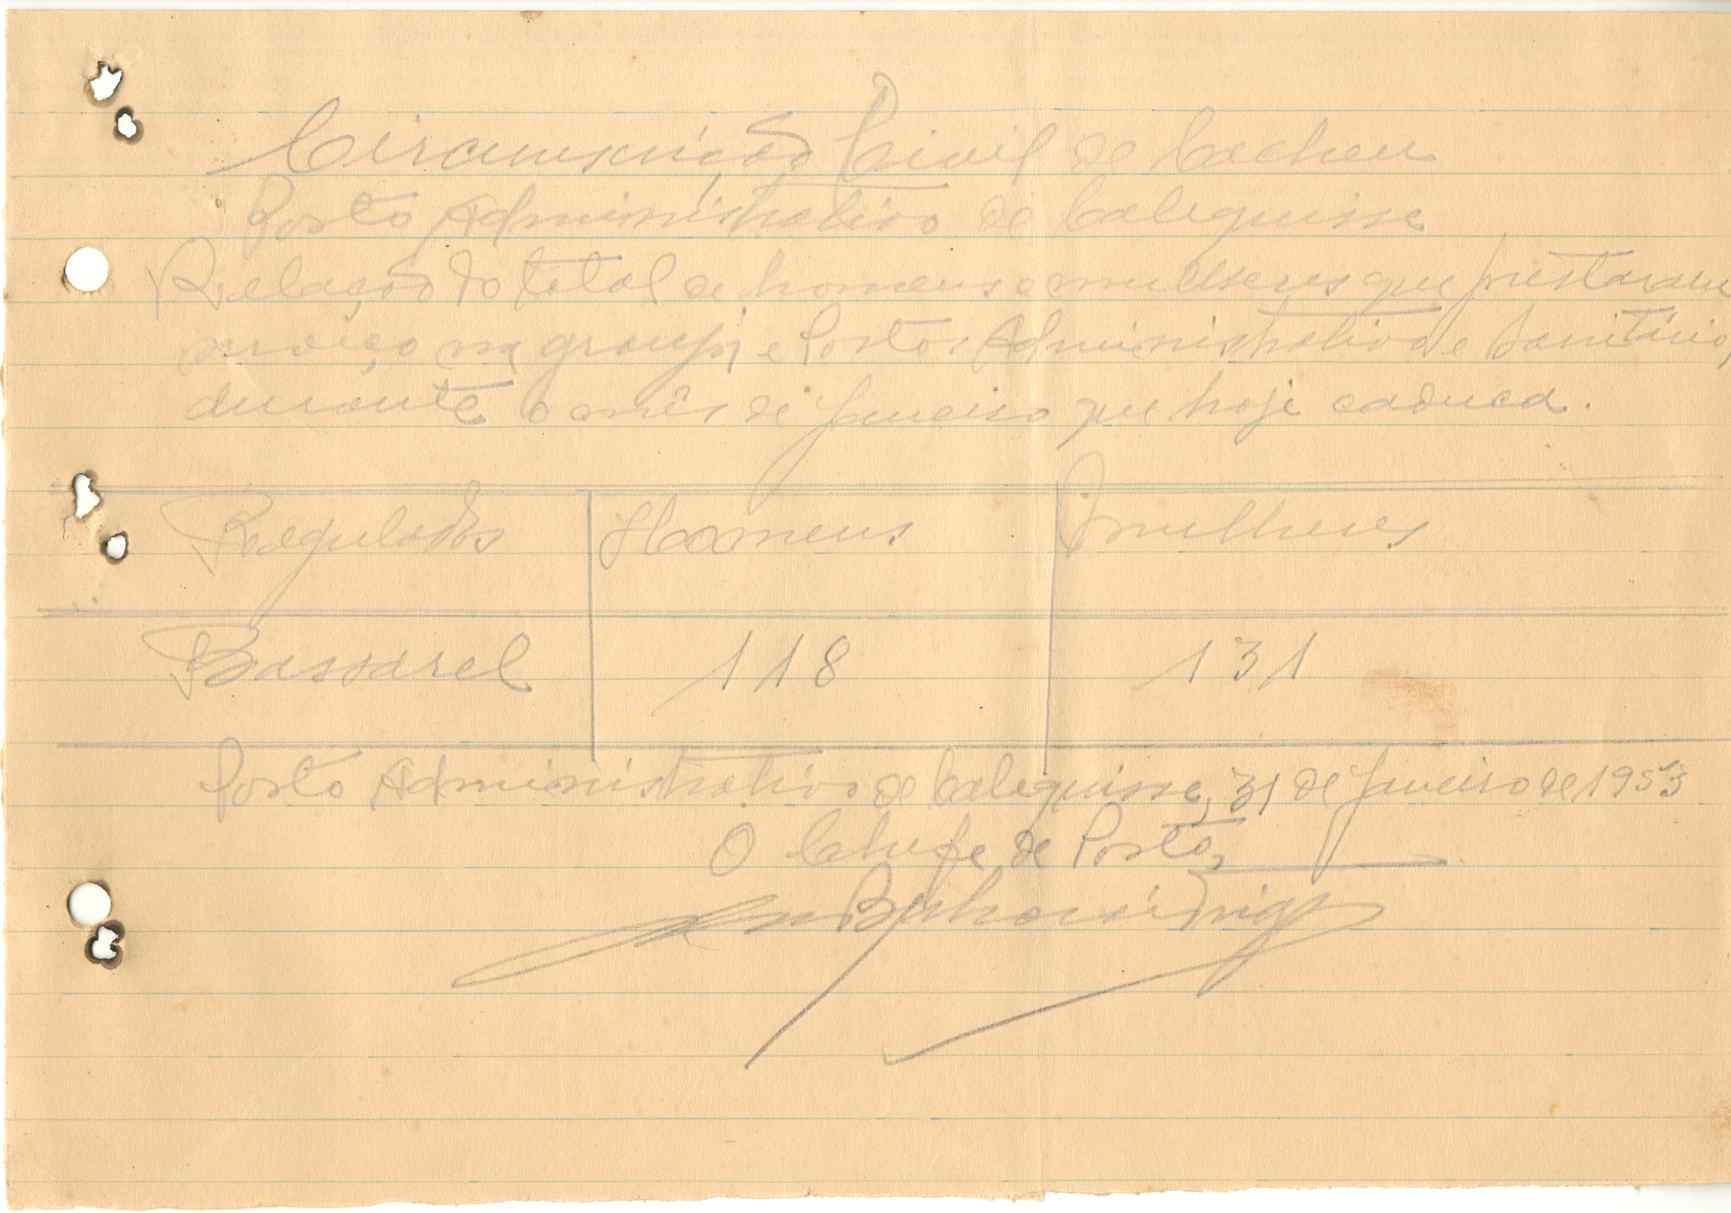 Circunscrição Civil de Cacheu
Posto Administrativo de Calequisse
Relação do total de homens e mulheres que prestaram
serviço na granja e Postos Administrativo e Sanitário,
durante o mês de Janeiro que hoje caduca.
Regulados Homens Mulheres
Bassarel 118 131
Posto Administrativo de Calequisse, 31 de Janeiro de 1953
O Chefe de Posto,